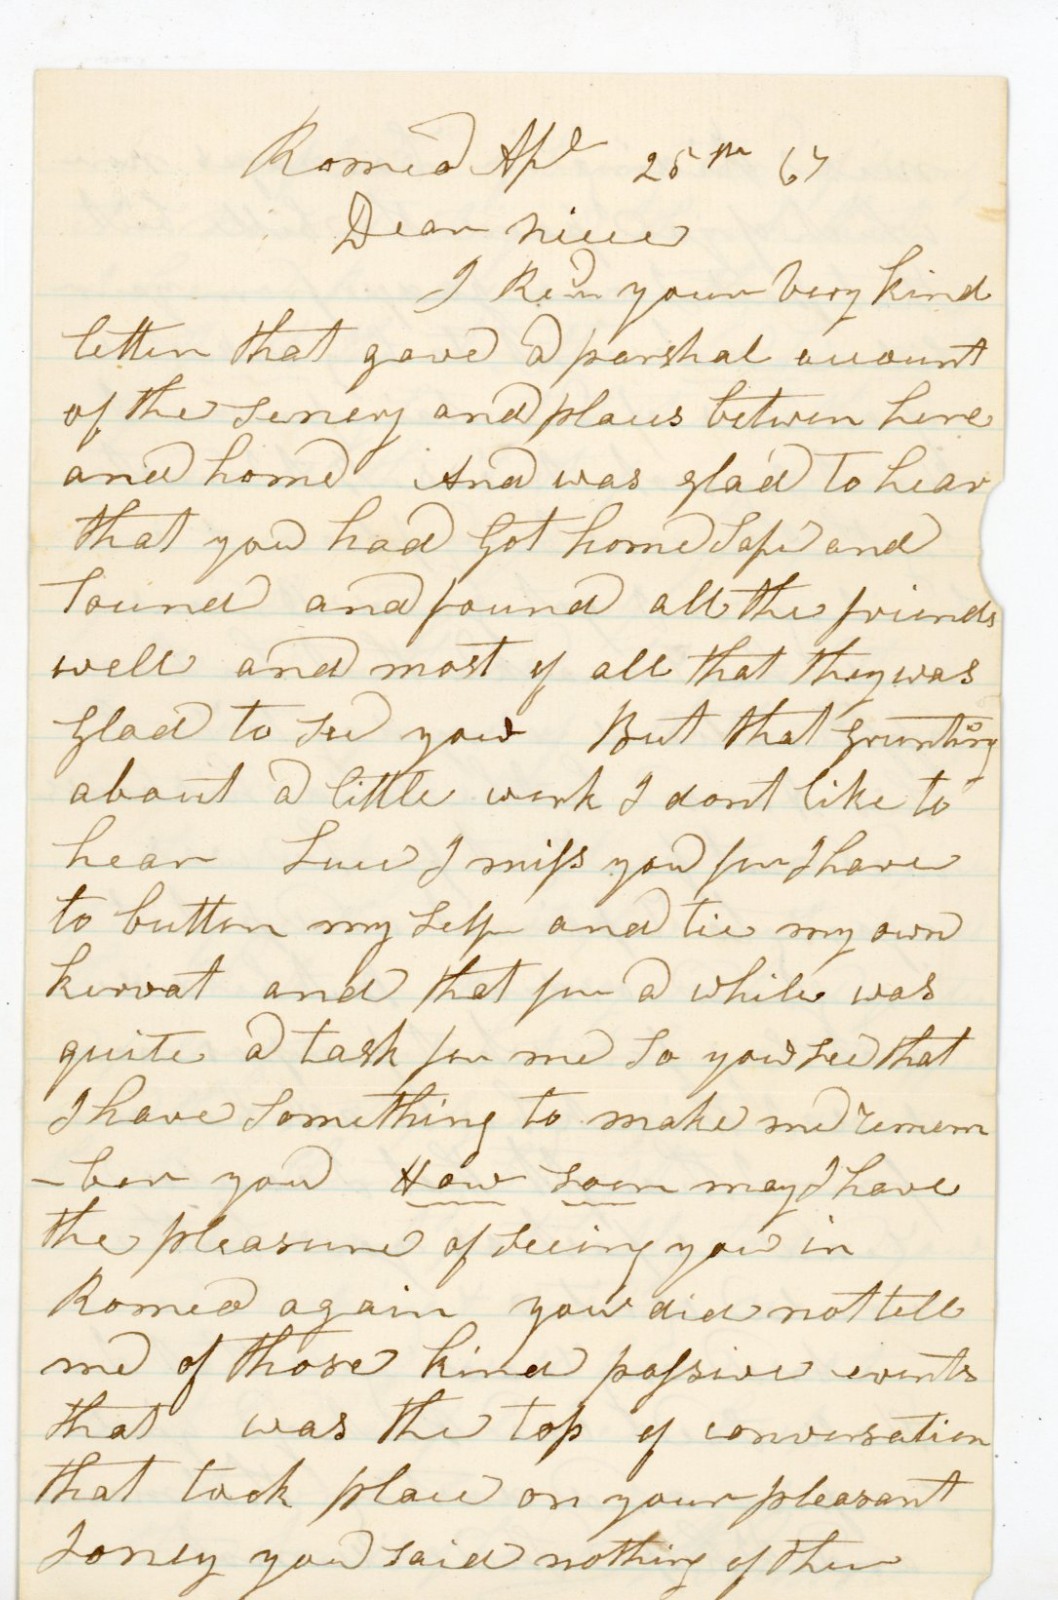 Romeo Apl 25th 67
Dear niece
I Recd your very kind
letter that gave a parshal account
of the senery and places between here
and home And was glad to hear
that you had Got home safe and
sound and found all the friends
well and most of all that they was
glad to see you But that Grunting
about a little work I dont like to
hear Sue I miss you for I have
to button my self and tie my own
kervat and that for a while was
quite a task for me so you see that
I have something to make me remem
-ber you How soon may I have
the pleasure of seeing you in
Romeo again you did not tell
me of those kind passive events
that was the top of conversation
that took place on your pleasant
Joney you said nothing of the